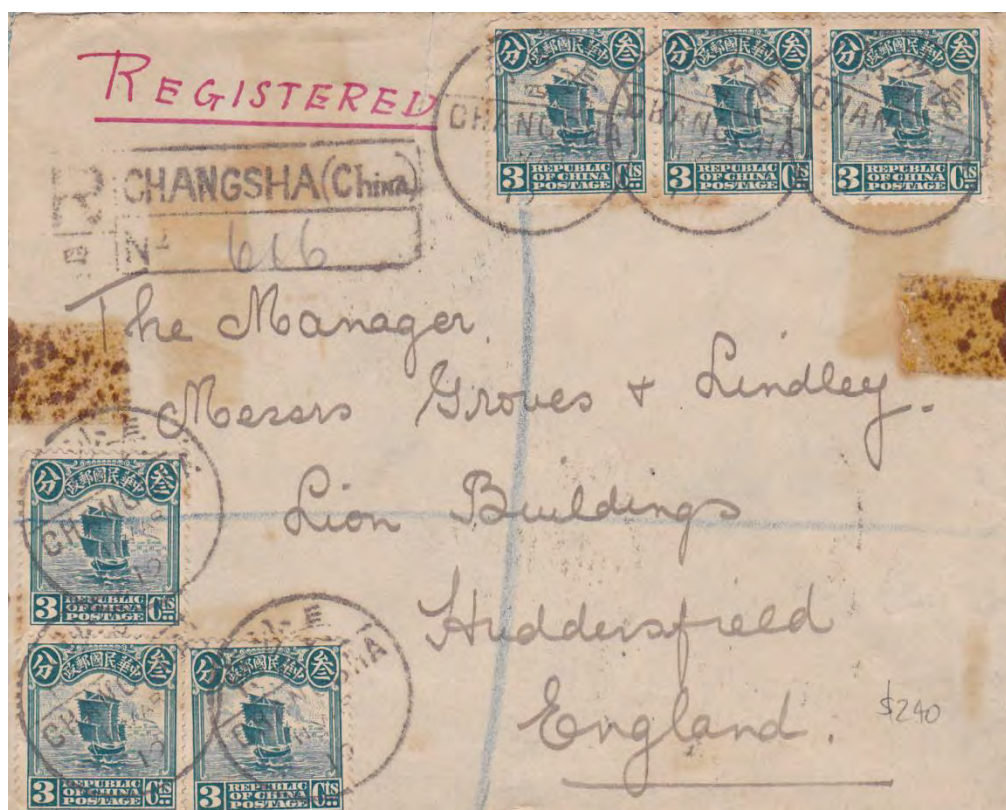 REGISTERED
R
CHANGSHA (China)
Nº 616
分 政郵國民華中 叁
3 REPUBLIC OF CHINA POSTAGE Cts
分 政郵國民華中 叁
3 REPUBLIC OF CHINA POSTAGE Cts
分 政郵國民華中 叁
3 REPUBLIC OF CHINA POSTAGE Cts
CHANGSHA
CHANGSHA
The Manager.
Messrs Groves + Lindley.
Lion Buildings
Huddersfield
England.
$240
分 政郵國民華中 叁
3 REPUBLIC OF CHINA POSTAGE Cts
分 政郵國民華中 叁
3 REPUBLIC OF CHINA POSTAGE Cts
分 政郵國民華中 叁
3 REPUBLIC OF CHINA POSTAGE Cts
CHANGSHA